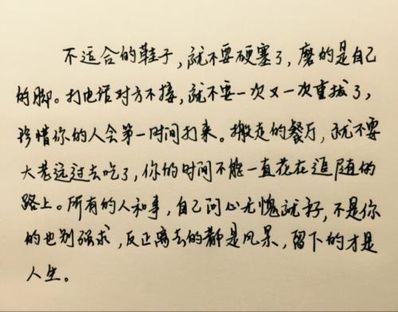 不适合的鞋子，就不要硬塞了，磨的是自己
的脚。打电话对方不接，就不要一次又一次重拨了，
珍惜你的人会第一时间打来。搬走的餐厅，就不要
大老远过去吃了，你的时间不能一直花在追随的
路上。所有的人和事，自己问心无愧就好，不是你
的也别强求，反正离去的都是风景，留下的才是
人生。